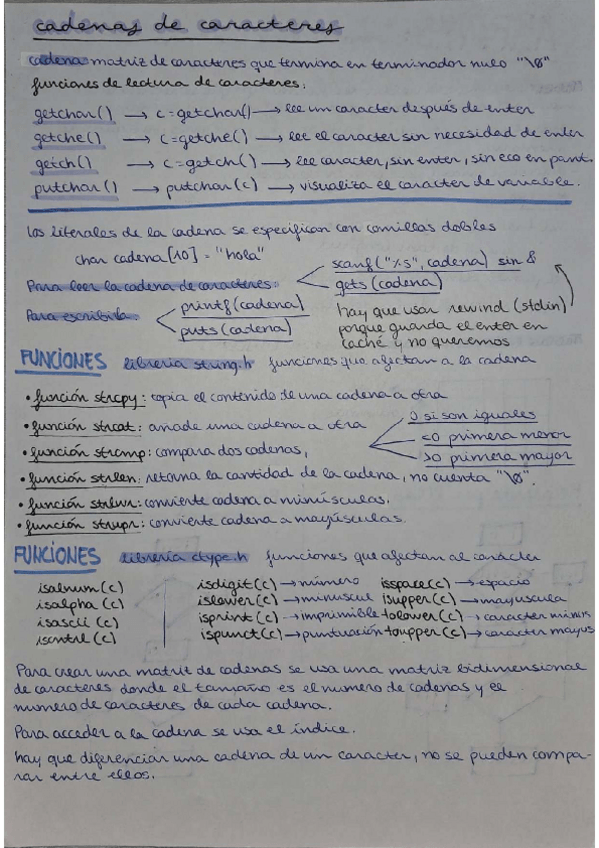 cadenas de caracteres
cadena matriz de caracteres que termina en terminador nulo "\0"
funciones de lectura de caracteres:
getchar() → c=getchar() → lee un caracter después de enter
getche() → c=getche() → lee el caracter sin necesidad de enter
getch() → c=getch() → lee caracter, sin enter, sin eco en pant.
putchar() → putchar(c) → visualiza el caracter de variable.
Los literales de la cadena se especifican con comillas dobles
char cadena[10] = "hola"
Para leer la cadena de caracteres: scanf("%s", cadena) sin &
gets(cadena)
Para escribirla: printf(cadena)
puts(cadena)
hay que usar rewind (stdin)
porque guarda el enter en
caché y no queremos
FUNCIONES librería string.h funciones que afectan a la cadena
• función strcpy: copia el contenido de una cadena a otra
• función strcat: añade una cadena a otra
• función strcmp: compara dos cadenas,
0 si son iguales
<0 primera menor
>0 primera mayor
• función strlen: retorna la cantidad de la cadena, no cuenta "\0".
• función strlwr: convierte cadena a minúsculas.
• función strupr: convierte cadena a mayúsculas.
FUNCIONES librería ctype.h funciones que afectan al carácter
isalnum(c) isdigit(c) → número isspace(c) → espacio
isalpha(c) islower(c) → minuscul isupper(c) → mayuscula
isascii(c) isprint(c) → imprimible tolower(c) → caracter minus
iscntrl(c) ispunct(c) → puntuación toupper(c) → caracter mayus
Para crear una matriz de cadenas se usa una matriz bidimensional
de caracteres donde el tamaño es el numero de cadenas y el
numero de caracteres de cada cadena.
Para acceder a la cadena se usa el índice.
hay que diferenciar una cadena de un caracter, no se pueden compa-
rar entre ellos.